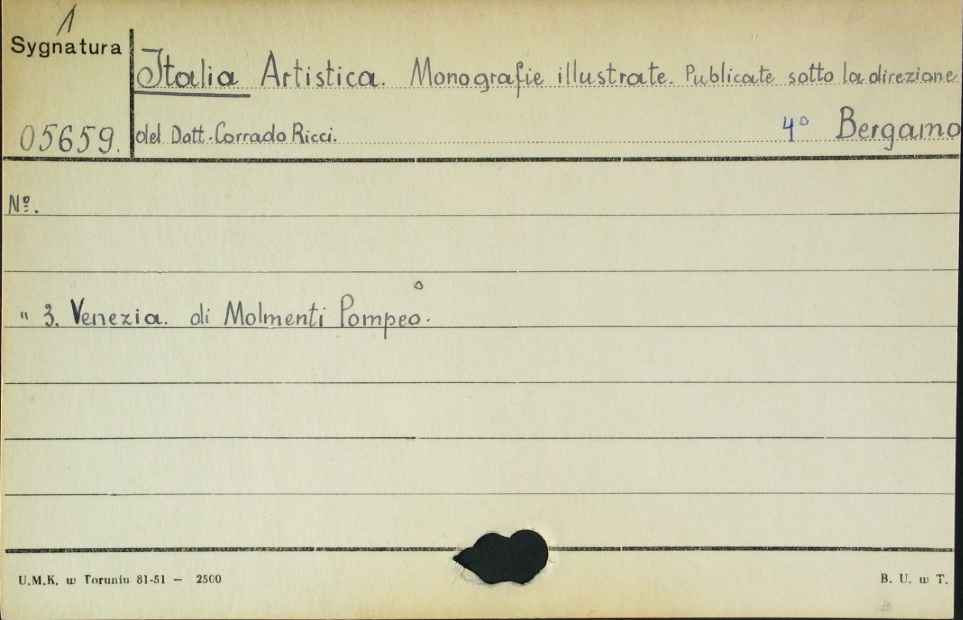 1
Sygnatura
Italia Artistica. Monografie illustrate. Publicate sotto la direzione
05659. del Dott. Corrado Ricci. 4° Bergamo
Nº.
" 3. Venezia. di Molmenti Pompeo.
U.M.K. w Toruniu 81-51 — 2500 B. U. w T.